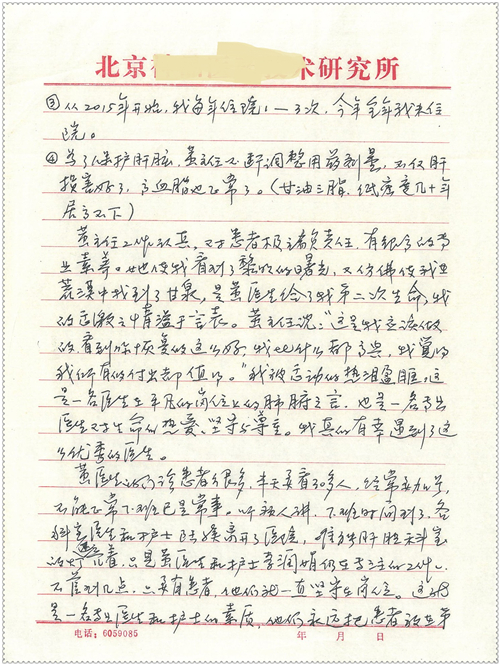 北京 术研究所
③从2015年开始,我每年住院1—3次,今年全年我未住
院。
④为了保护肝脏,黄主任不断调整用药剂量,不仅肝
损害好了,高血脂也正常了。(甘油三脂、低密度几十年
居高不下)
黄主任工作认真,对患者极端负责任,有很高的专
业素养。她使我看到了黎明的曙光,又仿佛使我在
荒漠中找到了甘泉,是黄医生给了我第二次生命,我
的感激之情溢于言表。黄主任说:“这是我应该做
的看到你恢复的这么好,我比什么都高兴,我觉的
我所有的付出都值的。”我被感动的热泪盈眶,这
是一名医生在平凡的岗位上的肺腑之言,也是一名专业
医生对生命的热爱、坚守与尊重。我真的有幸遇到了这
么优秀的医生。
黄医生的门诊患者很多,半天要看30多人,经常加号,
不能正常下班已是常事。听病人讲,下班时间到了,各
科室医生和护士陆续离开了医院,唯独肝胆科室
的灯亮着,只是黄医生和护士 娟仍在专注的工作,
不管到几点,只要有患者,他们就一直坚守在岗位。这
是一名专业医生和护士的素质,他们永远把患者放在第
电话:6059085 年 月 日